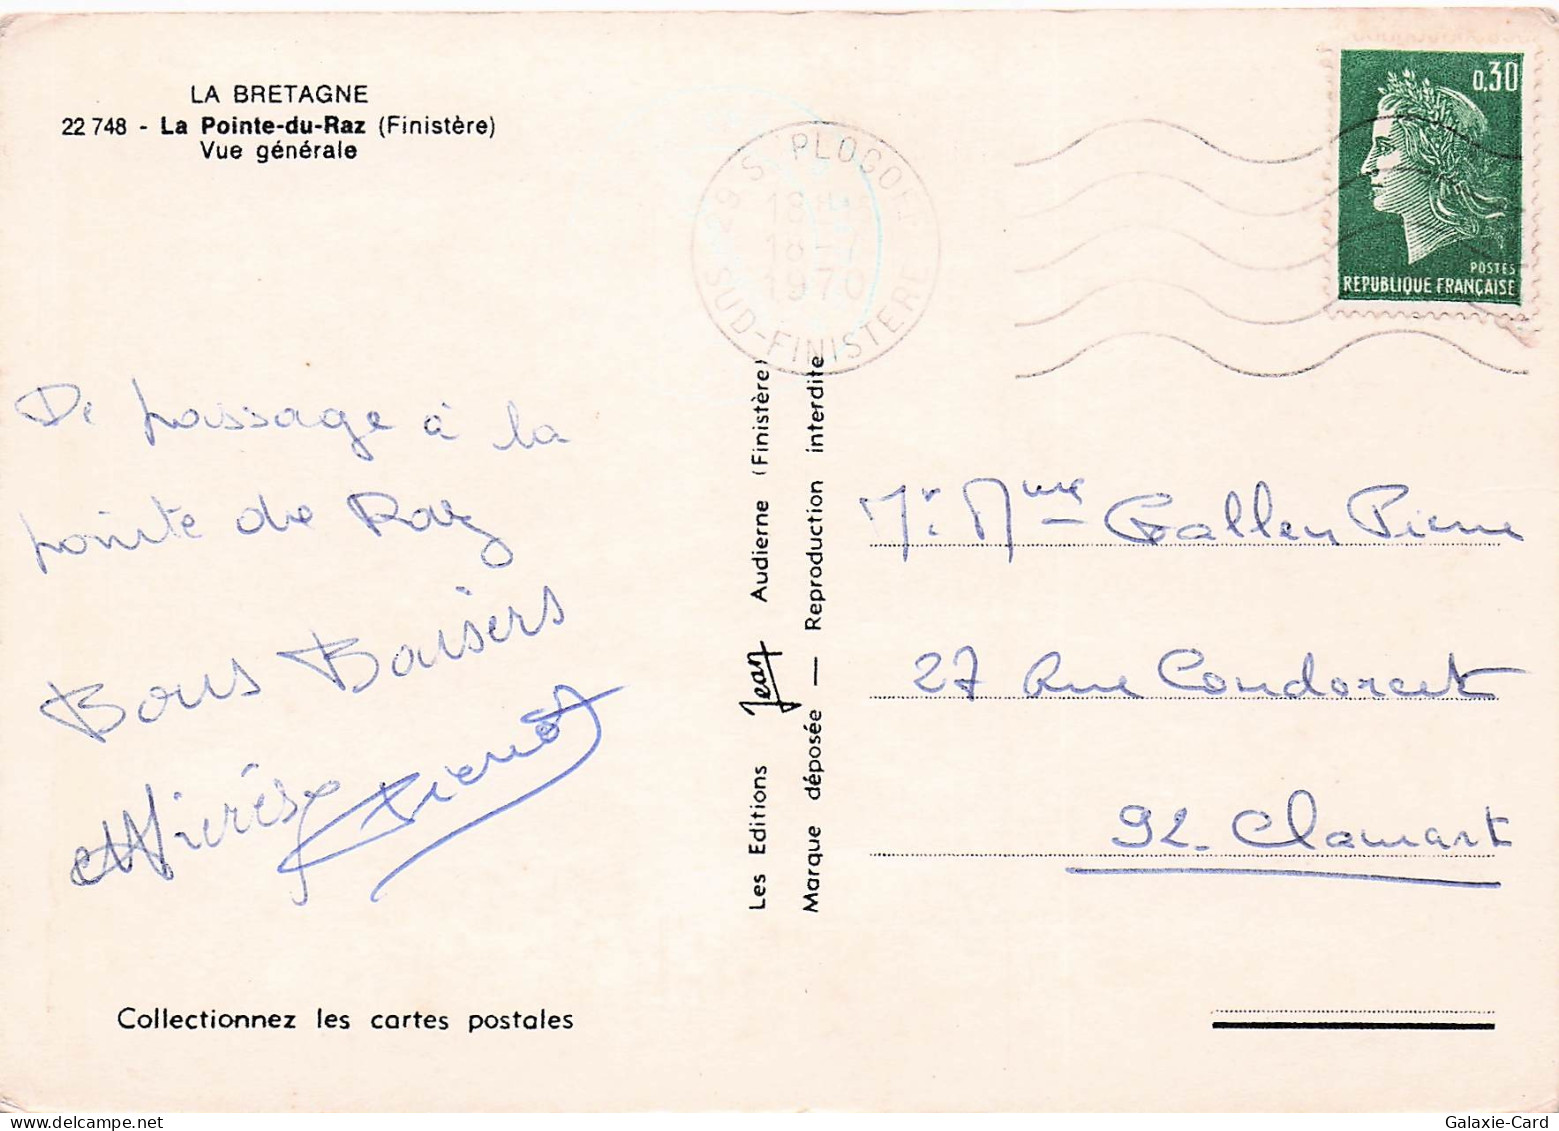 LA BRETAGNE
22 748 - La Pointe-du-Raz (Finistère)
Vue générale
29 S. PLOGOFF
18 H
18-7
1970
SUD-FINISTERE
0,30
POSTES
REPUBLIQUE FRANÇAISE
De passage à la
pointe du Raz
Bons Baisers
Les Editions Jean Audierne (Finistère)
Marque déposée — Reproduction interdite
Mr. Mme Gallen Pierre
27 Rue Condorcet
92. Clamart
Collectionnez les cartes postales
Galaxie-Card